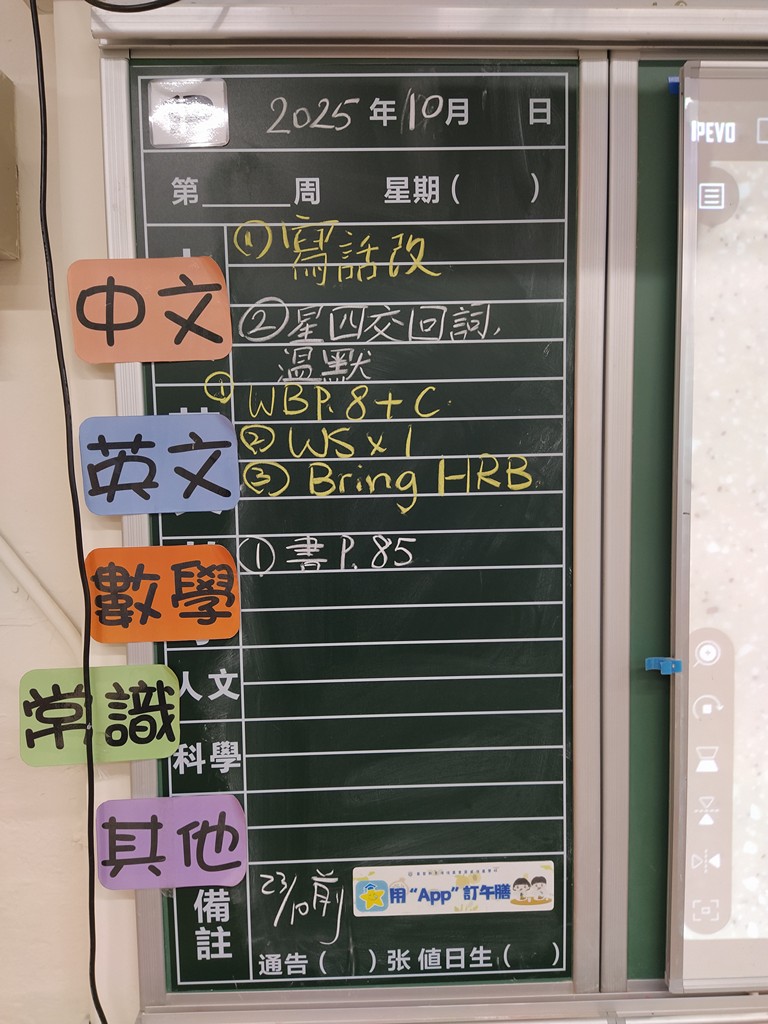 2025年10月 日
第 周 星期( )
中文
① 寫話改
② 星四交回詞,
溫默
英文
① WB P.8 + C
② WS x 1
③ Bring HRB
數學
① 書 P. 85
常識
人文
科學
其他
備註
23/10前
用“App”訂午膳
通告( )张 值日生( )
IPEVO